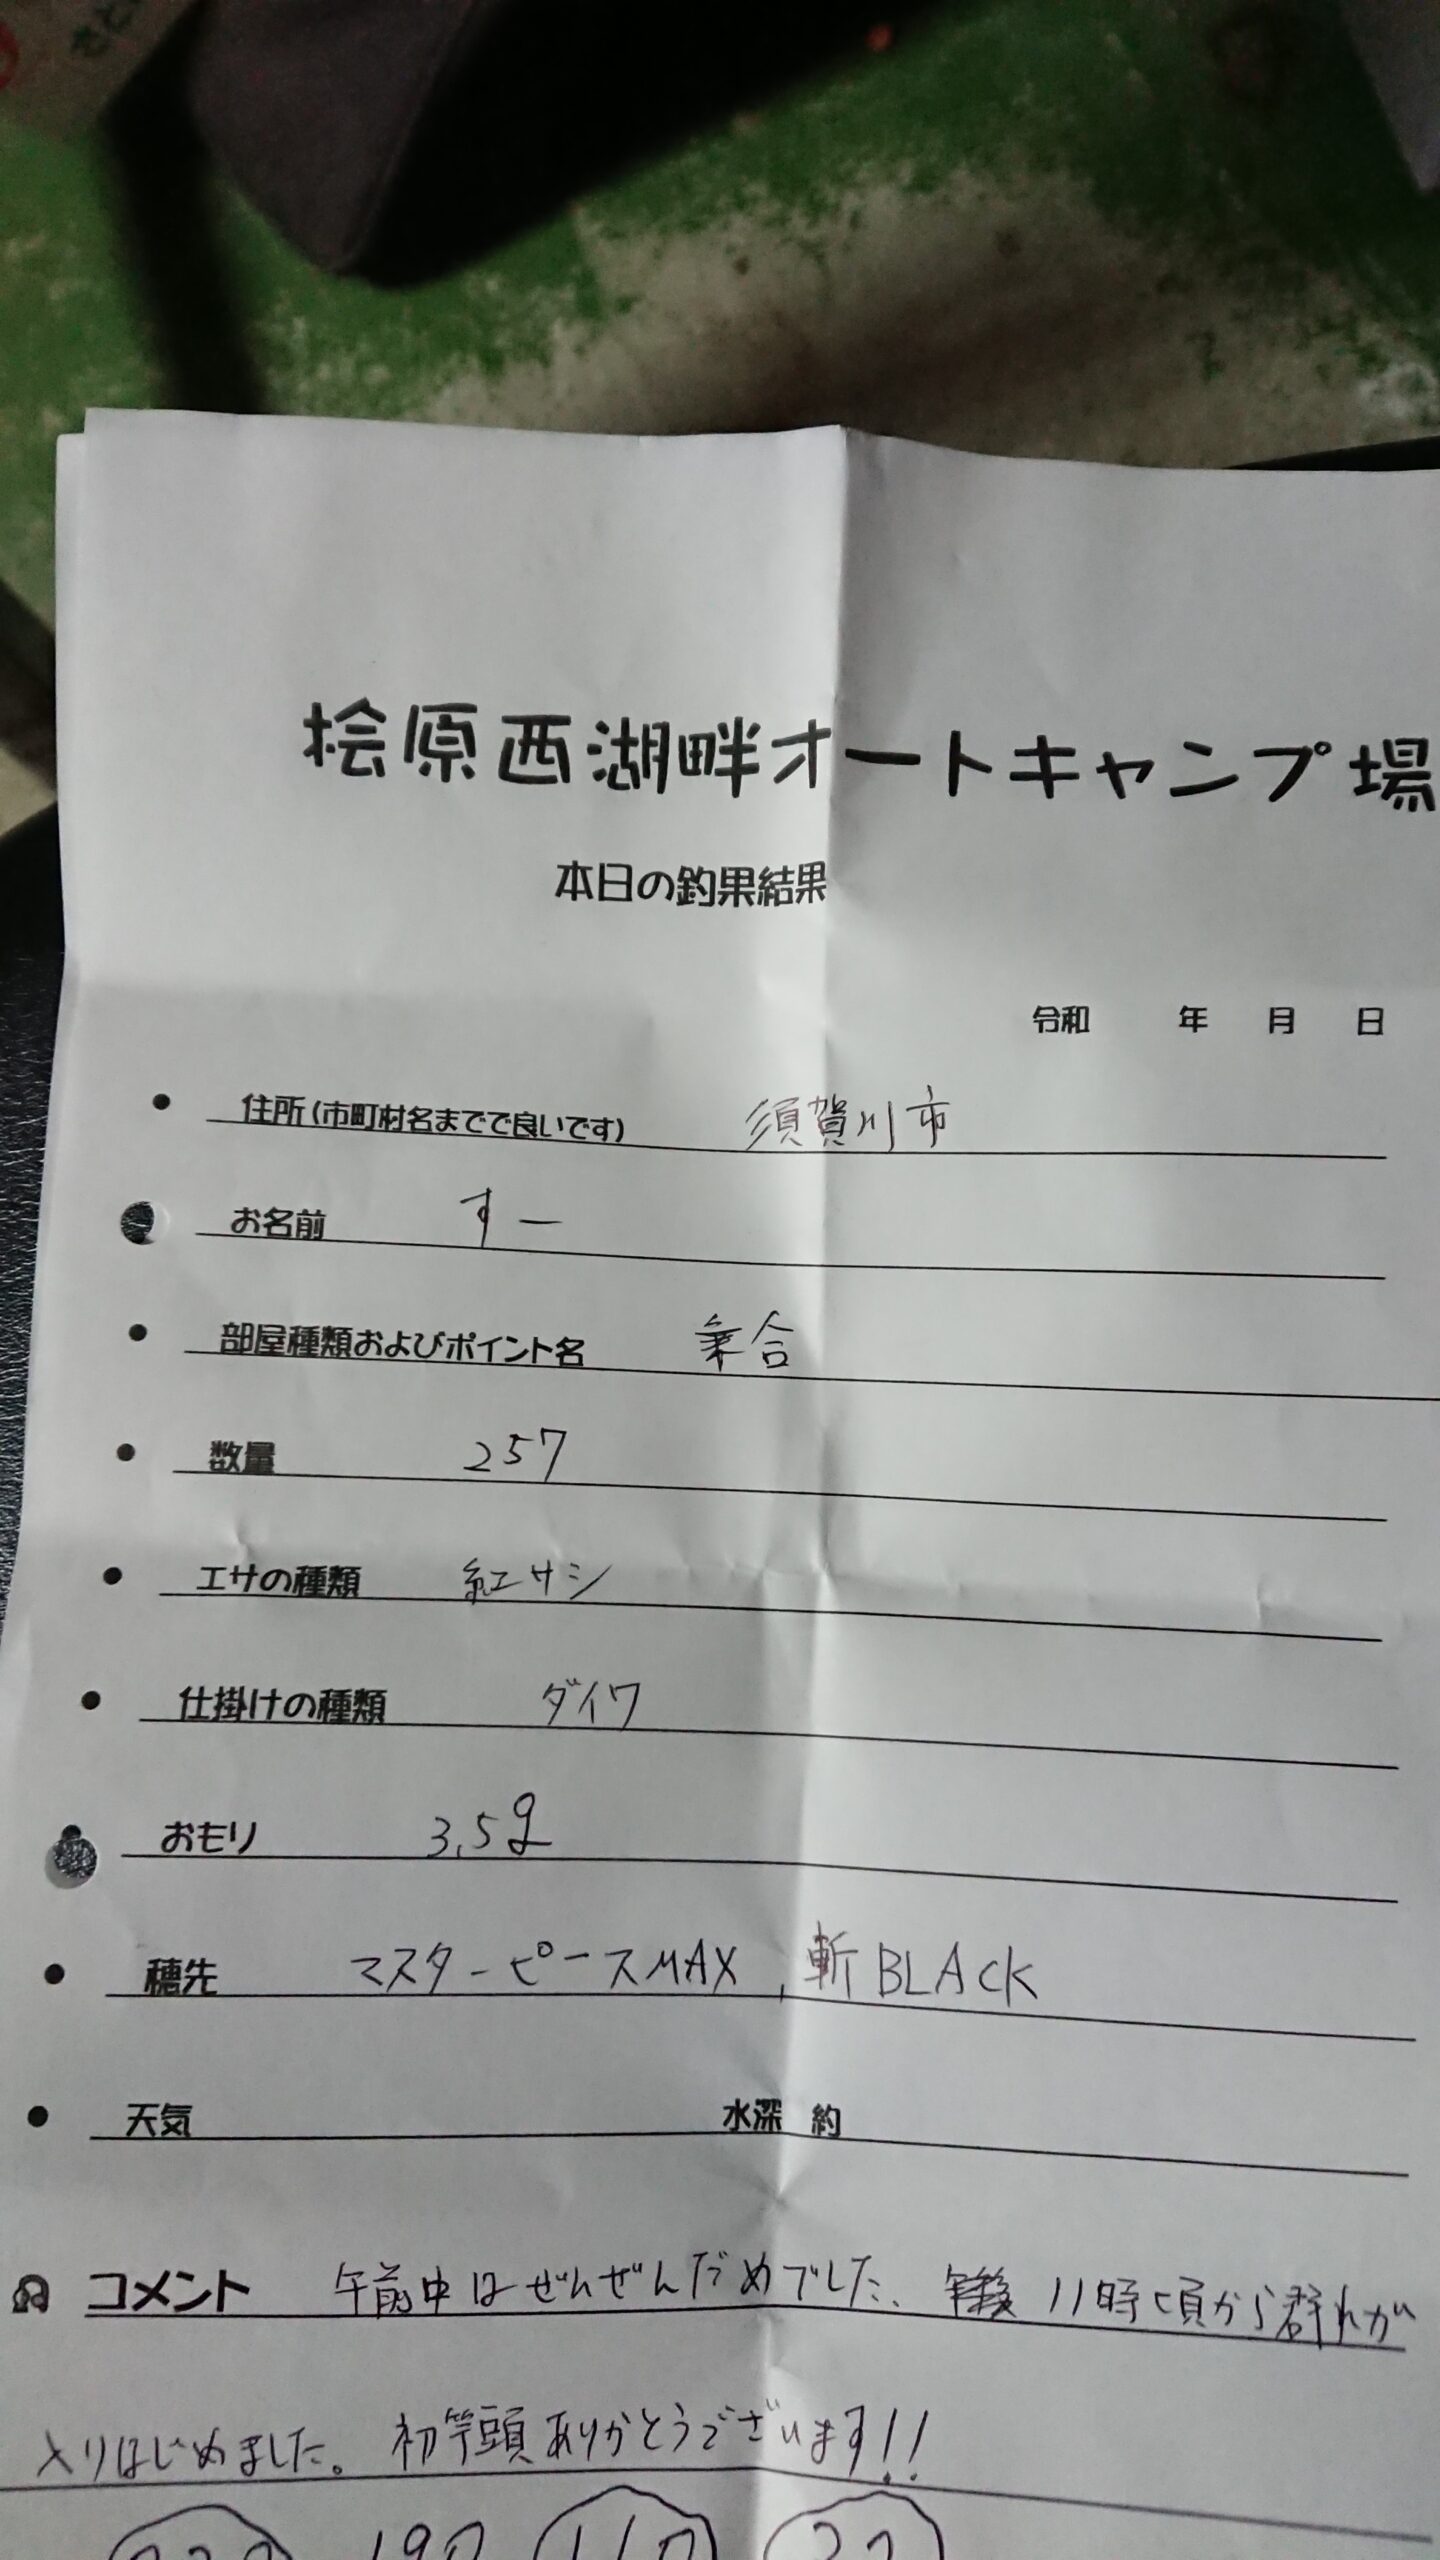 桧原西湖畔オートキャンプ場
本日の釣果結果
令和 年 月 日
住所(市町村名までで良いです) 須賀川市
お名前 すー
部屋種類およびポイント名 乗合
数量 257
エサの種類 紅サシ
仕掛けの種類 ダイワ
おもり 3.5g
穂先 マスターピースMAX, 斬BLACK
天気 水深 約
コメント 午前中はぜんぜんだめでした、 11時頃から群れが
入りはじめました。初竿頭ありがとうございます!!